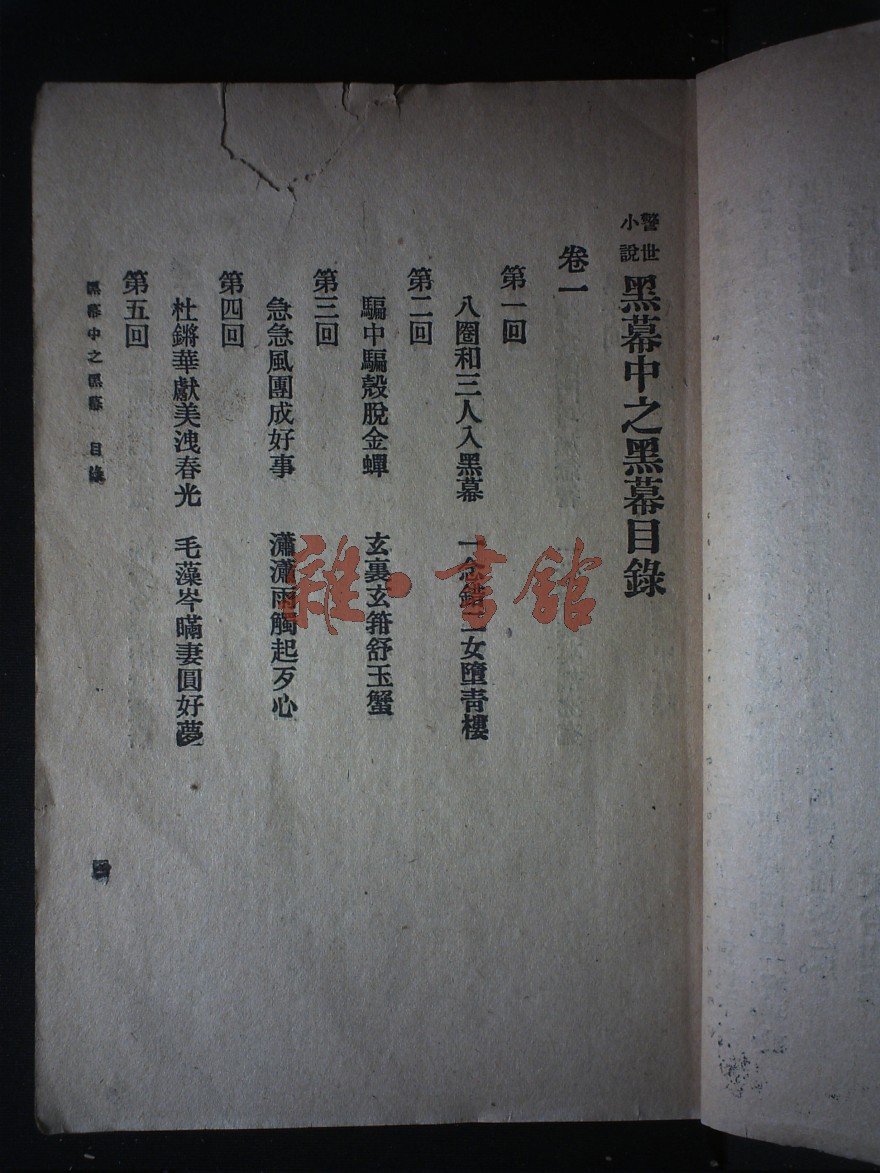 警世小說 黑幕中之黑幕目錄
卷一
第一回
八圈和三人入黑幕 一念錯二女墮青樓
第二回
騙中騙殼脫金蟬 玄裏玄箝舒玉蟹
第三回
急急風團成好事 瀟瀟雨觸起歹心
第四回
杜鏘華獻美洩春光 毛藻岑瞞妻圓好夢
第五回
黑幕中之黑幕 目錄
雜·書館